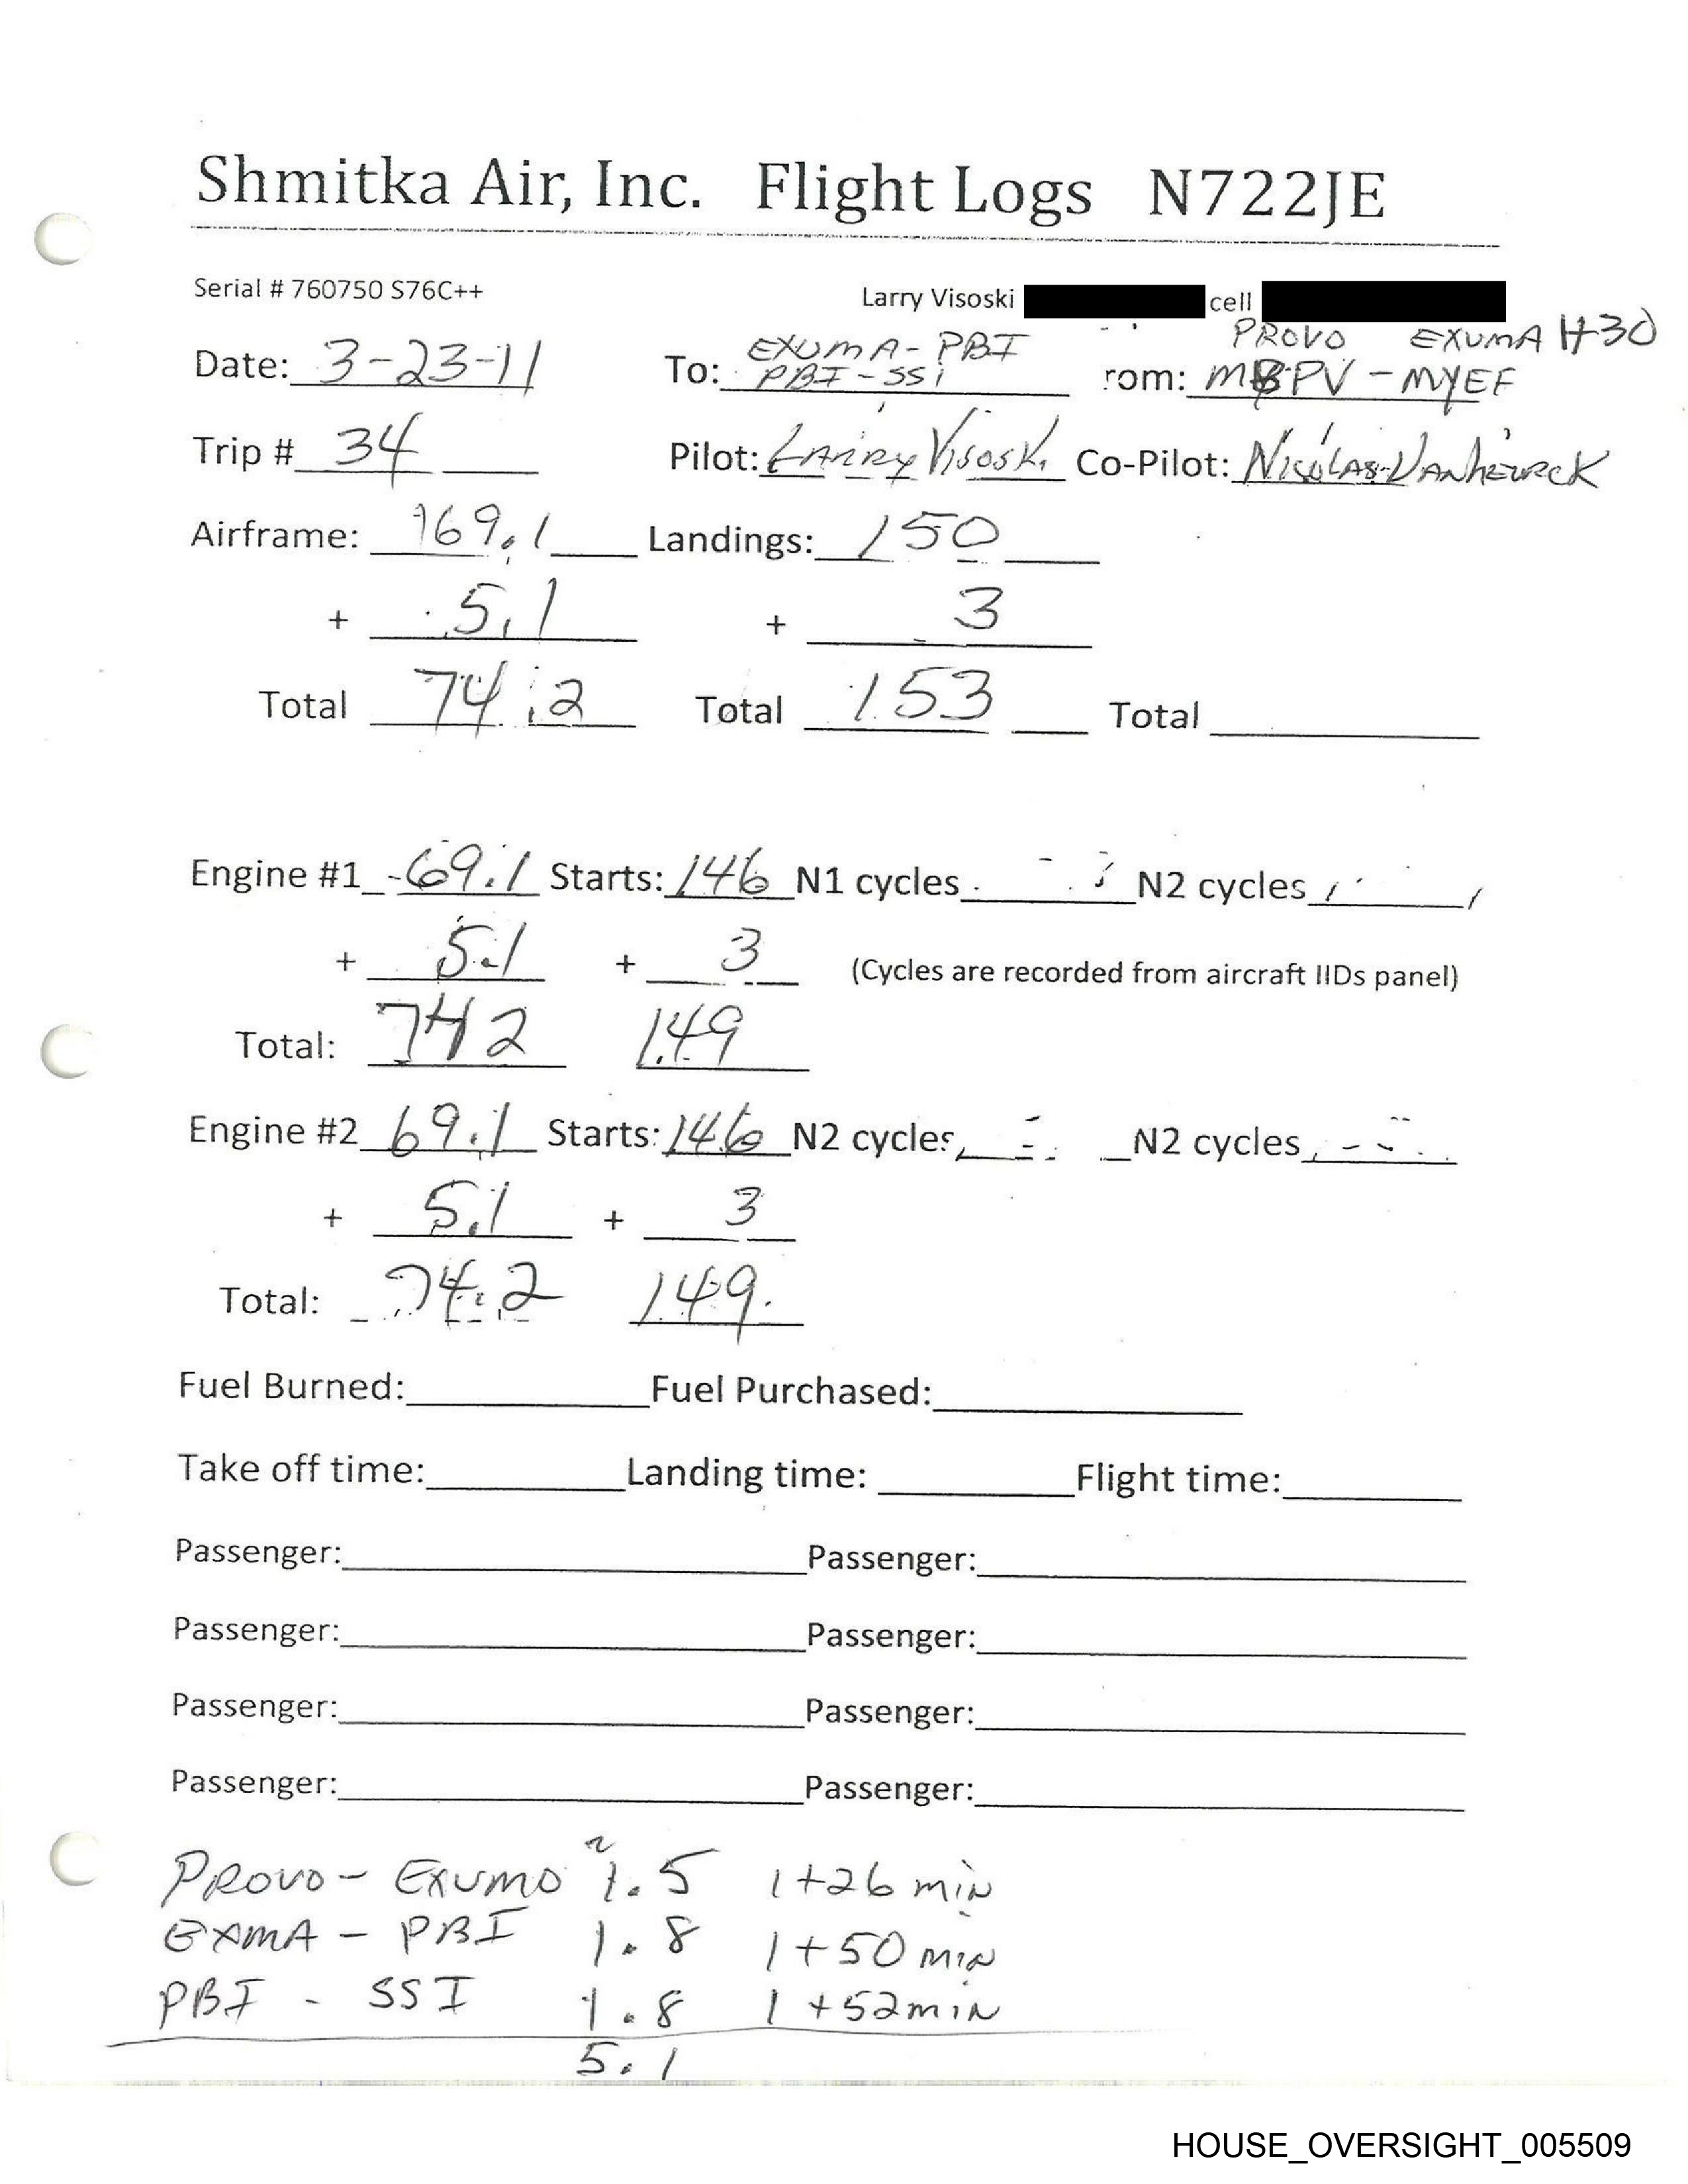 Shmitka Air, Inc. Flight Logs N722JE
Serial # 760750 S76C++ Larry Visoski cell
PROVO EXUMA 1+30
EXUMA - PBI
Date: 3-23-11 To: PBI - SSI rom: MBPV - MYEF
Trip # 34 Pilot: LARRY Visoski Co-Pilot: Nicolas Vanheurck
Airframe: 69.1 Landings: 150
+ 5.1 + 3
Total 74.2 Total 153 Total
Engine #1 69.1 Starts: 146 N1 cycles N2 cycles
+ 5.1 + 3 (Cycles are recorded from aircraft IIDs panel)
Total: 742 149
Engine #2 69.1 Starts: 146 N2 cycles N2 cycles
+ 5.1 + 3
Total: 74.2 149
Fuel Burned: Fuel Purchased:
Take off time: Landing time: Flight time:
Passenger: Passenger:
Passenger: Passenger:
Passenger: Passenger:
Passenger: Passenger:
PROVO - EXUMO 1.5 1+26 min
EXMA - PBI 1.8 1+50 min
PBI - SSI 1.8 1+52 min
5.1
HOUSE_OVERSIGHT_005509